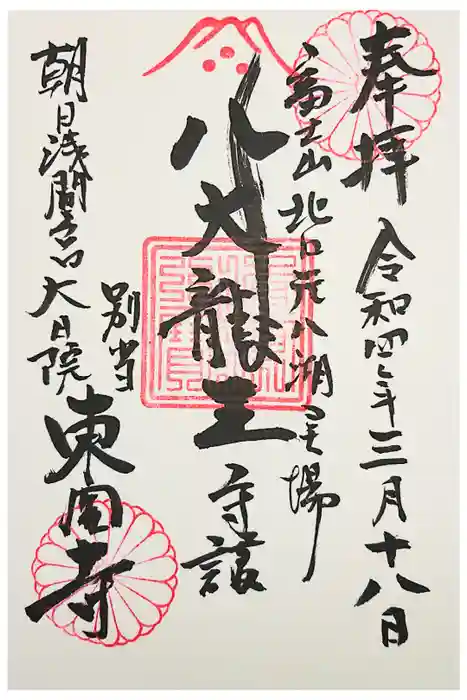 奉拝
令和四年三月十八日
富士山北口元八湖霊場
八大龍王
守護
朝日浅間宮大日院
別当
東圓寺